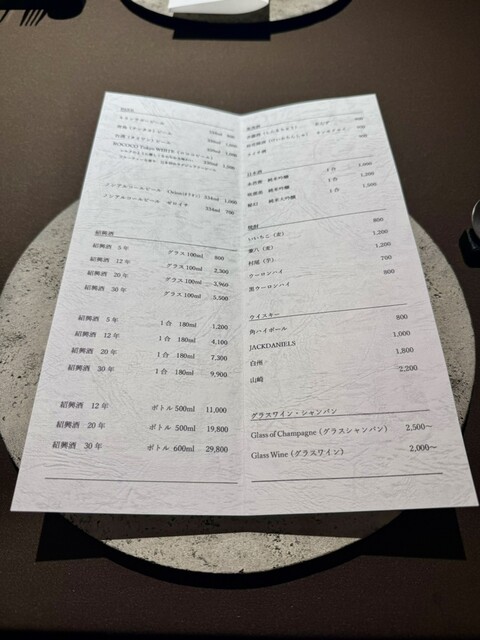 ビール
334ml 900
青島（チンタオ）ビール
台湾（タイワン）ビール
ROCOCO Tokyo WHITE（ロココビール）
ノンアルコールビール 334ml 1,000
ノンアルコールビール 334ml 700
紹興酒
紹興酒 5年 グラス100ml 800
紹興酒 12年 グラス100ml 2,300
紹興酒 20年 グラス100ml 3,960
紹興酒 30年 グラス100ml 5,500
紹興酒 5年 1合 180ml 1,200
紹興酒 12年 1合 180ml 4,100
紹興酒 20年 1合 180ml 7,300
紹興酒 30年 1合 180ml 9,900
紹興酒 12年 ボトル 500ml 11,000
紹興酒 20年 ボトル 500ml 19,800
紹興酒 30年 ボトル 600ml 29,800
果実酒
日本酒
純米吟醸 1合 1,000
純米吟醸 1合 1,200
純米大吟醸 1合 1,800
焼酎
いいちこ（麦） 800
兼八（麦） 1,200
村尾（芋） 1,200
ウーロンハイ 700
黒ウーロンハイ 800
ウイスキー
角ハイボール 800
JACKDANIELS 1,000
白州 1,800
山崎 2,200
グラスワイン・シャンパン
Glass of Champagne（グラスシャンパン） 2,500〜
Glass Wine（グラスワイン） 2,000〜